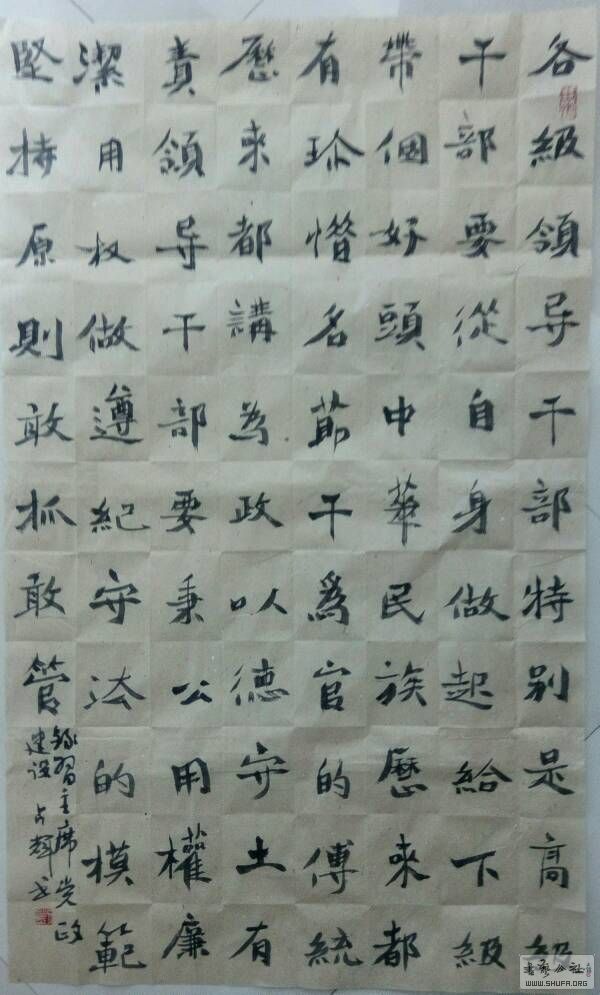 各級領导干部特别是高級
干部要從自身做起給下級
帶個好頭中華民族歷來都
有珍惜名節干爲官的傳統
歷來都講為政以德守土有
責領导干部要秉公用權廉
潔用权做遵紀守法的模範
堅持原則敢抓敢管
錄習主席党政
建设 占輝书
書藝公社
WWW.SHUFA.ORG